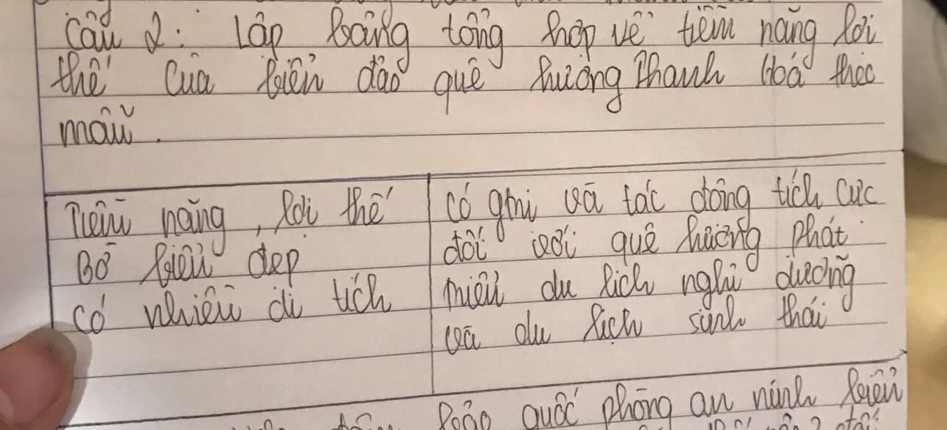 Câu 2: Lập bảng tổng hợp về tiềm năng lợi
thế của biển đảo quê hương Thanh Hoá theo
mẫu.
Tiềm năng, lợi thế
Bờ biển đẹp
có nhiều di tích
có ghi và tác động tích cực
đối với quê hương phát
triển du lịch nghỉ dưỡng
và du lịch sinh thái
bảo quốc phòng an ninh biển